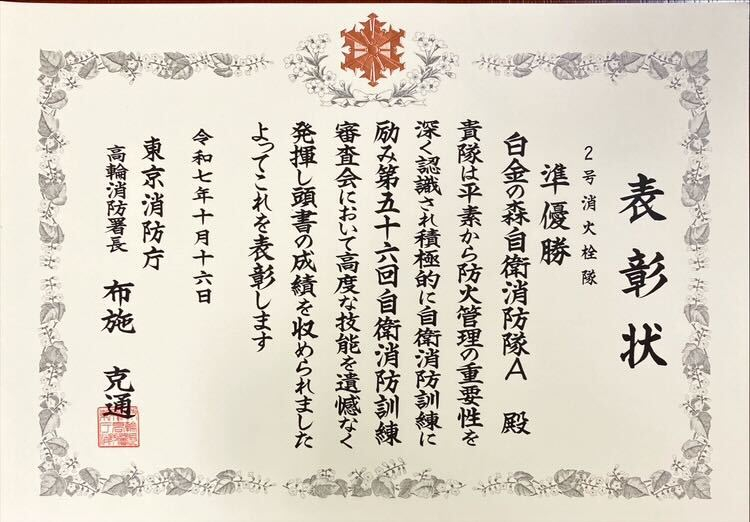 表彰状
2号消火栓隊
準優勝
白金の森自衛消防隊A 殿
貴隊は平素から防火管理の重要性を
深く認識され積極的に自衛消防訓練に
励み第五十六回自衛消防訓練
審査会において高度な技能を遺憾なく
発揮し頭書の成績を収められました
よってこれを表彰します
令和七年十月十六日
東京消防庁
高輪消防署長 布施 克通